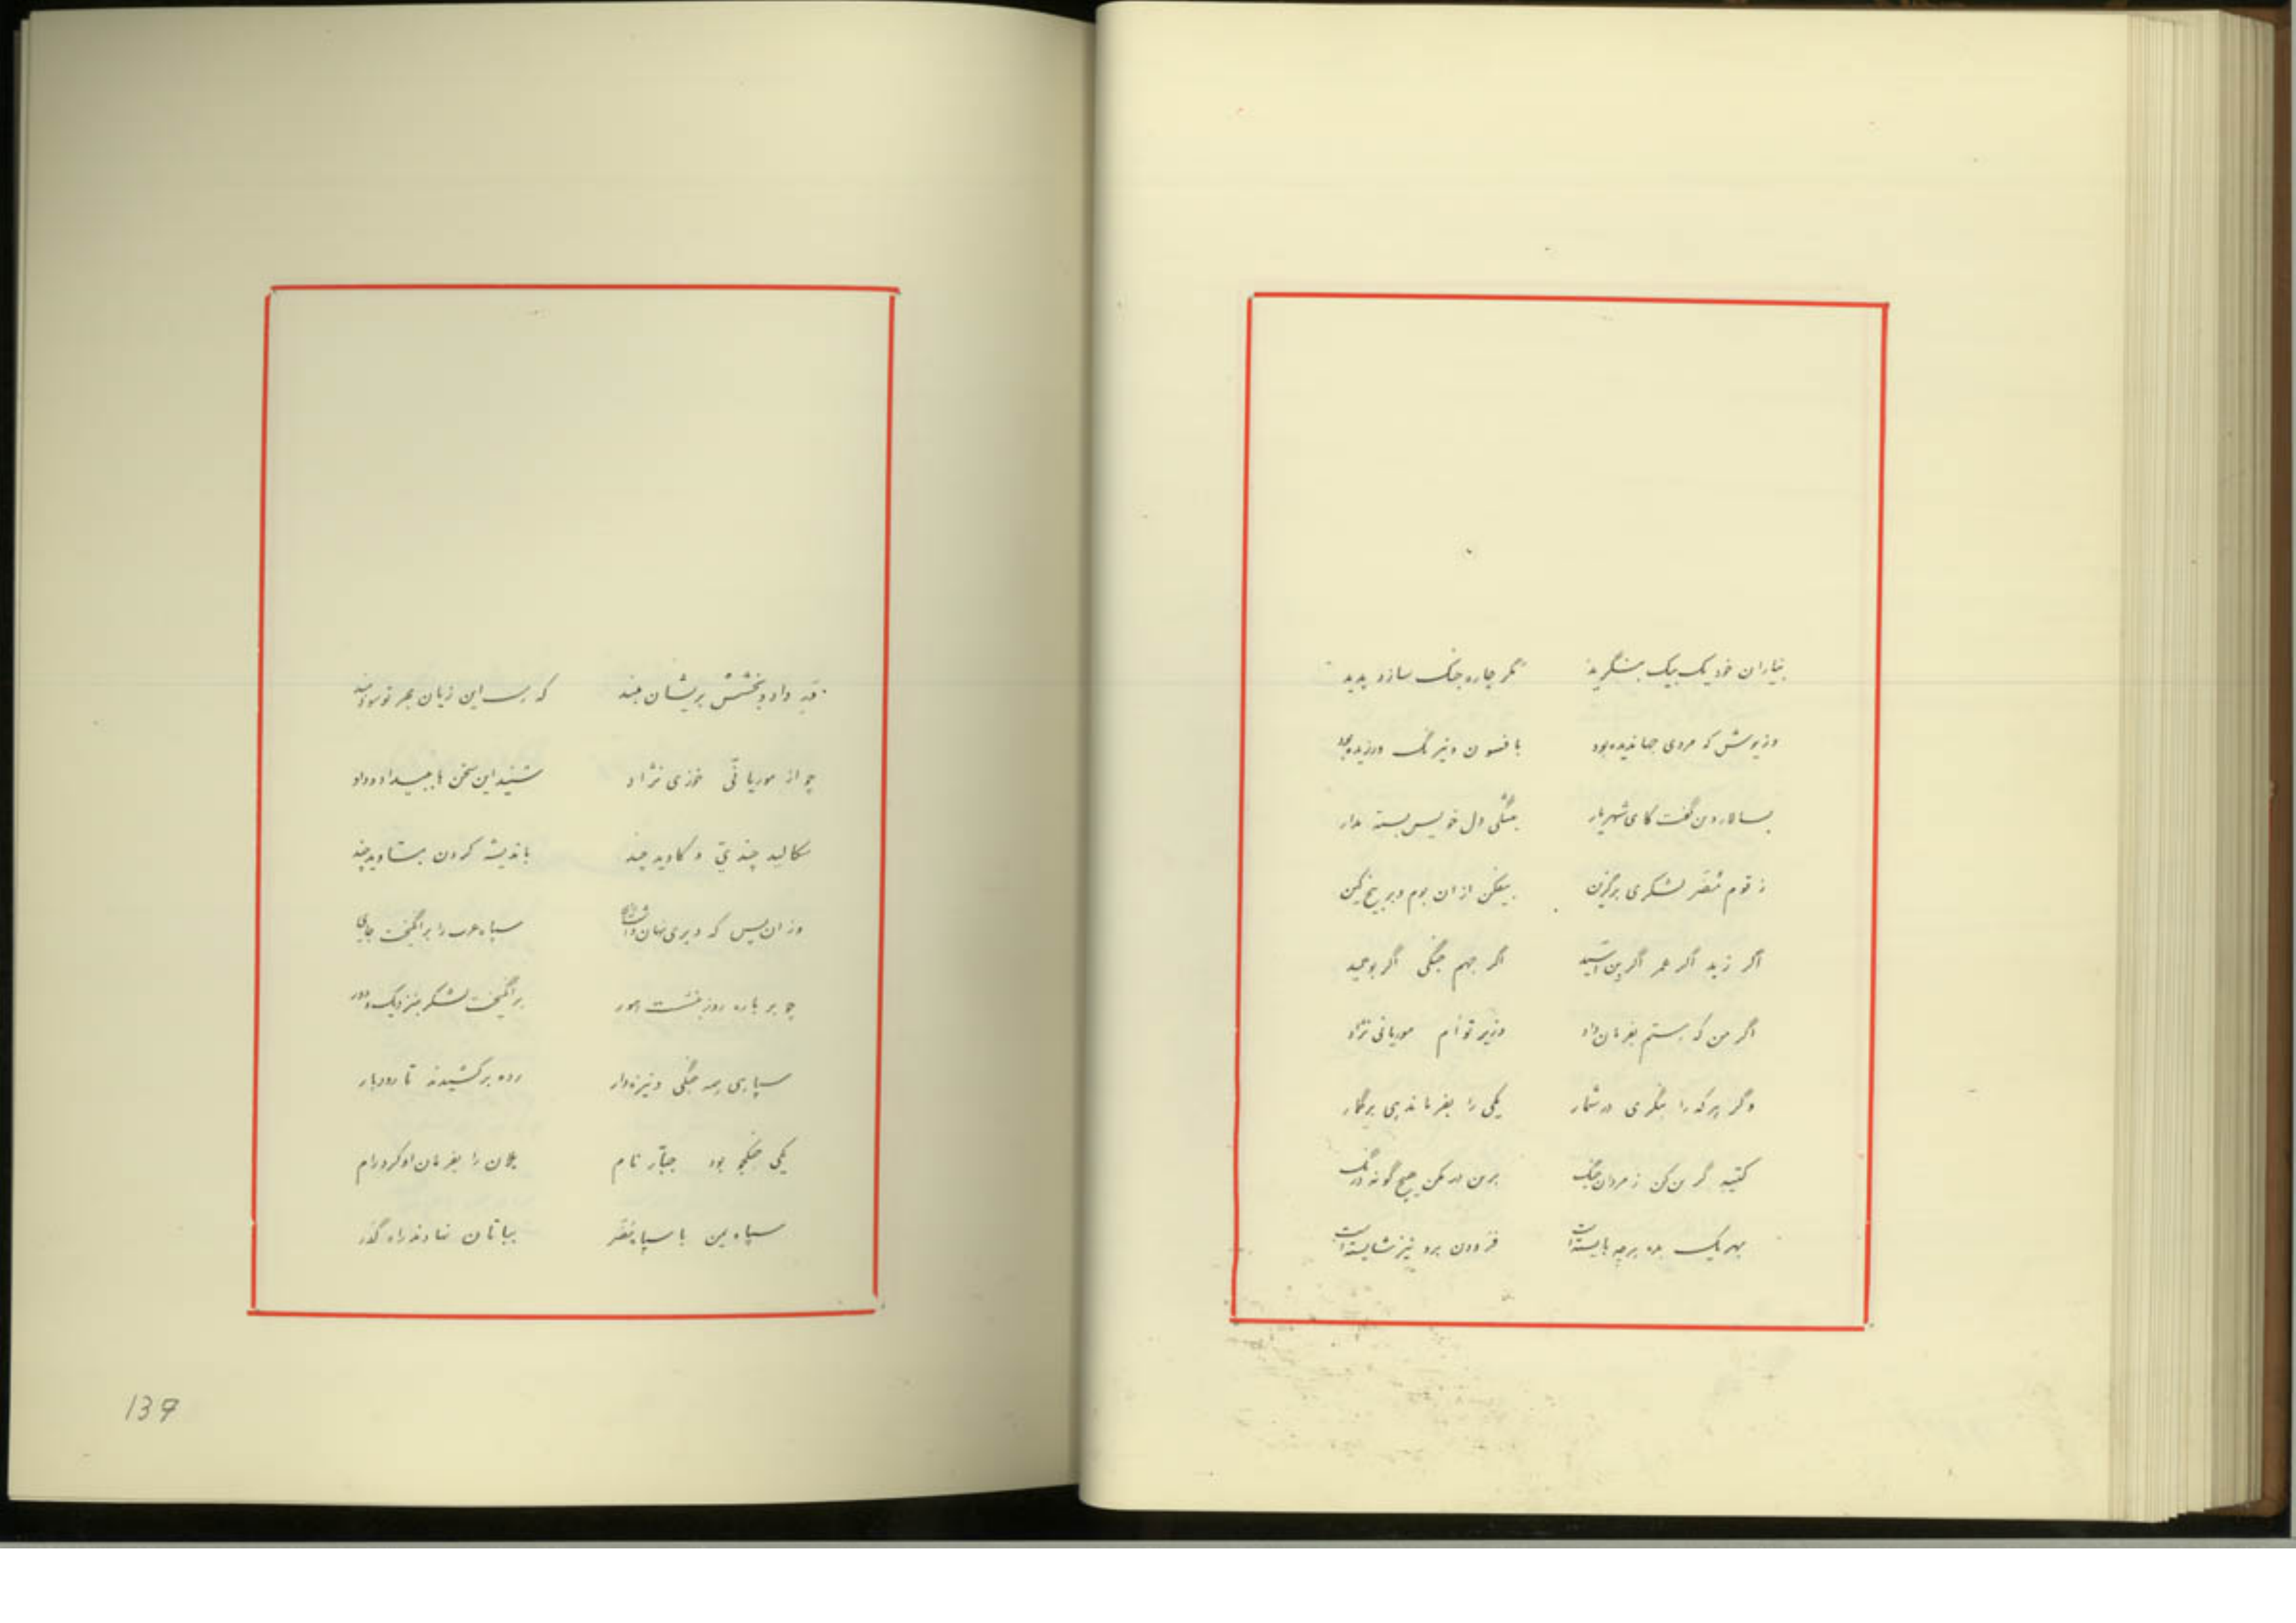 بیاران خود یک بیک بنگرید مگر چاره جنگ سازد پدید
وزیرش که مردی جهاندیده بود بافسون و نیرنگ ورزیده بود
بسالار دون گفت کای شهریار بتنگی دل خویس بسته مدار
ز قوم مُضَر لشکری برگزین بیفکن از ان بوم و بر بیخ کین
اگر زید اگر عمر اگر بن اسید اگر جهم جنگی اگر بوعبید
اگر من که بستم بفرمان داد وزیر توام موریانی نژاد
وگر هرکه را بنگری در شمار یکی را بفرماندهی برگمار
کتیبه گزین کن ز مردان جنگ برین در مکن هیچ گونه درنگ
بهر یک بده هرچه بایسته است فزودن برو نیز شایسته است
داد و بخشش بریشان ببند که این زیان بهر تو سودمند
چو از موریانّی خوزی نژاد شنید این سخن ها بیداد و داد
سکالید چندیّ و کاوید چند باندیشه کردن
وزان پس که دیری نهان داشت رای سپاه عرب را برانگیخت جای
چو بر باره روز بنشست هور برانگیخت لشکر بنزدیک و دور
سپاهی همه جنگی و نیزه دار رده برکشیدند تا رودبار
یکی جنگجو بود جبّار نام یلان را بفرمان او کرد رام
سپاه یمن با سپاه مُضَر بباتان نهادند راه گذر
139